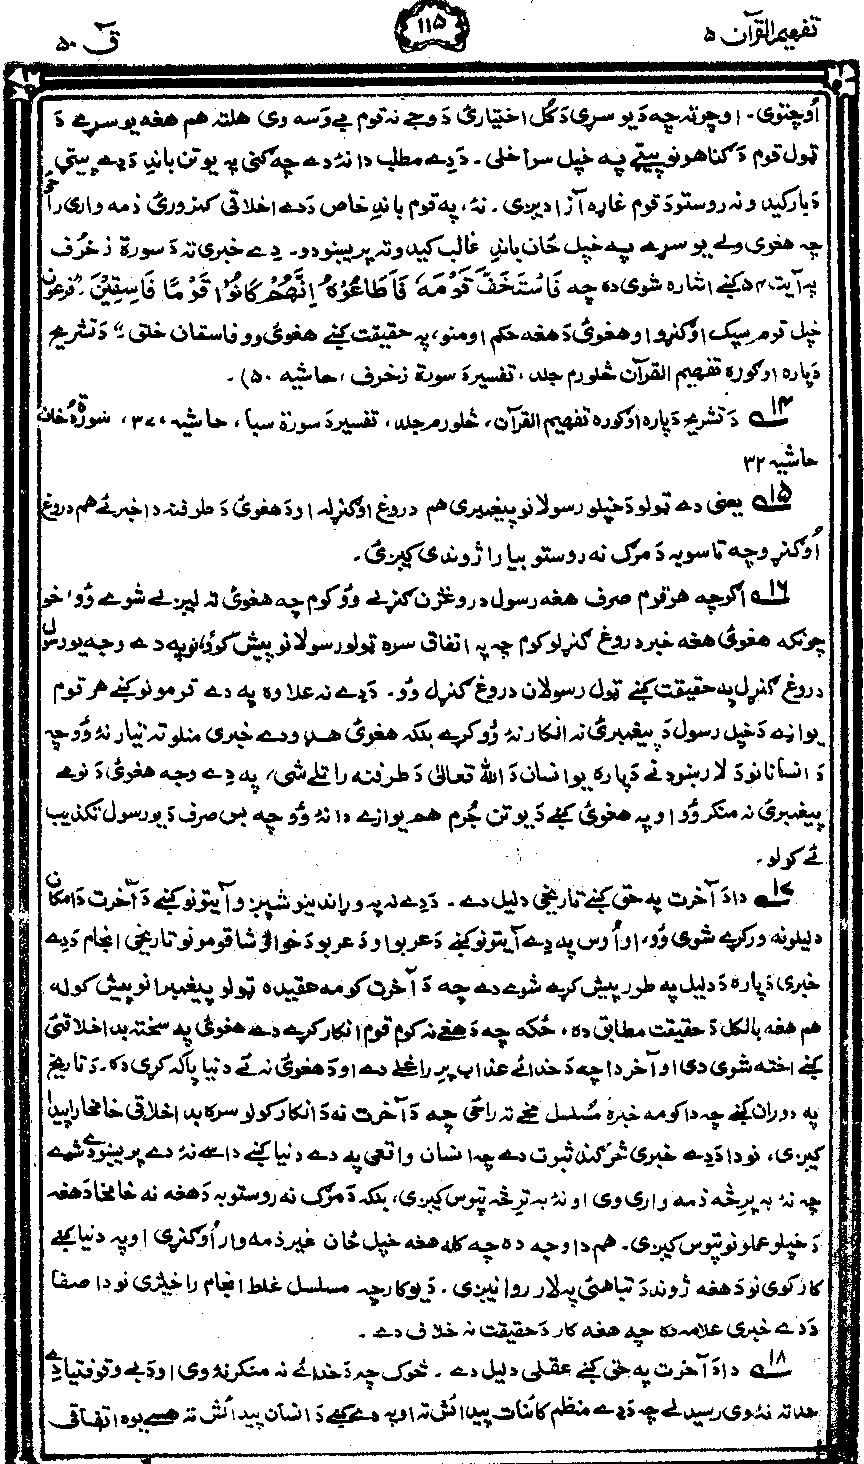 تفهيم القرآن ۵
۱۱۵
ق ۵۰
اُوچتوی۔ اوچرته چه دَ يو سړی دَ کُل اختیارئ دَ وجے نه قوم بے وسه وی هلته هم هغه يو سړے دَ
ټول قوم دَ کناهونو پيټے په خپل سر اخلی۔ دَ دے مطلب دا نهٔ دے چه کنی په يو تن باندِ دَ دے پيټی
دَ بار کیدو نه روستو دَ قوم غاړه آزاديږی۔ نهٔ، په قوم باندِ خاص دَ دے اخلاقی کمزورئ ذمه واری راځی
چه هغوی ولے يو سړے په خپل ځان باندِ غالب کیدو ته پريښودو۔ دِے خبری ته دَ سورة زخرُف
په آیت ۵۴ کښے اشاره شوی ده چه فَاسْتَخَفَّ قَوْمَهٗ فَاَطَاعُوْهُ اِنَّهُمْ كَانُوْا قَوْمًا فَاسِقِيْنَ۔ "فرعون
خپل قوم سپک اوګنړو او هغوئ دَ هغه حکم اومنو، په حقیقت کښے هغوئ وو فاسقان خلق"۔ دَ تشریح
دَ پاره اوګوره تفهيم القرآن څلورم جلد، تفسیر دَ سورة زخرف، حاشیه ۵۰)۔
۱۴ دَ تشریح دَ پاره اوګوره تفهيم القرآن، څلورم جلد، تفسیر دَ سورة سبا، حاشیه ۳۷، سورة دُخان
حاشیه ۳۲
۱۵ یعنی دے ټولو دَ خپلو رسولانو پيغمبری هم دروغ اوګنړله او دَ هغوئ دَ طرفنه دا خبر ئے هم دروغ
اُوګنړو چه تاسو به دَ مرګ نه روستو بیا راژوندی کيږئ۔
۱۶ اګرچه هر قوم صرف هغه رسول دروغژن ګنړلے وو کوم چه هغوئ ته لیږلے شوے وُو، خو
چونکه هغوئ هغه خبر دروغ ګنړلو کوم چه په اتفاق سره ټولو رسولانو پيش کوؤ، نو په دے وجه يو رسول
دروغ ګنړل په حقیقت کښے ټول رسولان دروغ ګنړل وُو۔ دَ دے نه علاوه په دے قومونو کښے هر قوم
يوازے دَ خپل رسول دَ پيغمبرئ نه انکار نهٔ وُو کړے بلکه هغوئ هډو دے خبرے منلو ته تيار نهٔ وُو چه
دَ انسانانو دَ لارښودنے دَ پاره يو انسان دَ الله تعالیٰ دَ طرفنه راتلے شی، په دے وجه هغوئ دَ نوے
پيغمبرئ نه منکر وُو او په هغوئ کښے دَ يو تن جُرم هم يوازے دا نهٔ وُو چه بس صرف دَ يو رسول تکذیب
ئے کولو۔
۱۷ دا دَ آخرت په حق کښے تاریخی دلیل دے۔ دَ دے نه په وړاندینو شپږو آیتونو کښے دَ آخرت دَ امکان
دلیلونه ورکړے شوی وُو، او اُوس په دِے آیتونو کښے دَ عربو او دَ عربو دَ خوا ؤشا قومونو تاریخی انجام دَ دِے
خبری دَ پاره دَ دلیل په طور پيش کړے شوے دے چه دَ آخرت کومه عقیده ټولو پيغمبرانو پيش کوله
هم هغه بالکل دَ حقیقت مطابق ده، ځکه چه دَ هغے نه کوم قوم انکار کړے دے هغوئ په سخته بد اخلاقئ
کښے اخته شوی دی او آخر دا چه دَ خدائے عذاب پرِ راغلے دے او دَ هغوئ نه ئے دنيا پاکه کړی ده۔ دَ تاریخ
په دوران کښے چه دا کومه خبره مُسلسل مخے ته راځی چه دَ آخرت نه دَ انکار کولو سره بد اخلاقی خامخا راپیدا
کيږی، نو دا دَ دِے خبری څرګند ثبوت دے چه انسان واقعی په دے دنيا کښے داسے نهٔ دے پريښودے شوے
چه نهٔ به پرِ څه ذمه واری وی او نهٔ به ترِ څه تپوس کيږی، بلکه دَ مرګ نه روستو به دَ هغه نه خامخا دَ هغه
دَ خپلو عملونو تپوس کيږی۔ هم دا وجه ده چه کله هغه خپل ځان غیر ذمه وار اُوګنړی او په دنيا کښے
کار کوی نو دَ هغه ژوند دَ تباهئ په لار روانيږی۔ دَ يو کار چه مسلسل غلط انجام راخيژی نو دا صفا
دَ دے خبری علامه ده چه هغه کار دَ حقیقت نه خلاف دے۔
۱۸ دا دَ آخرت په حق کښے عقلی دلیل دے۔ څوک چه دَ خدائے نه منکر نهٔ وی او دَ بے وقوفتيا دے
حد ته نهٔ وی رسيدلے چه دَ دے منظم کائنات پيدائش ته او په دے کښے دَ انسان پيدائش ته هسے يوه اتفاقی